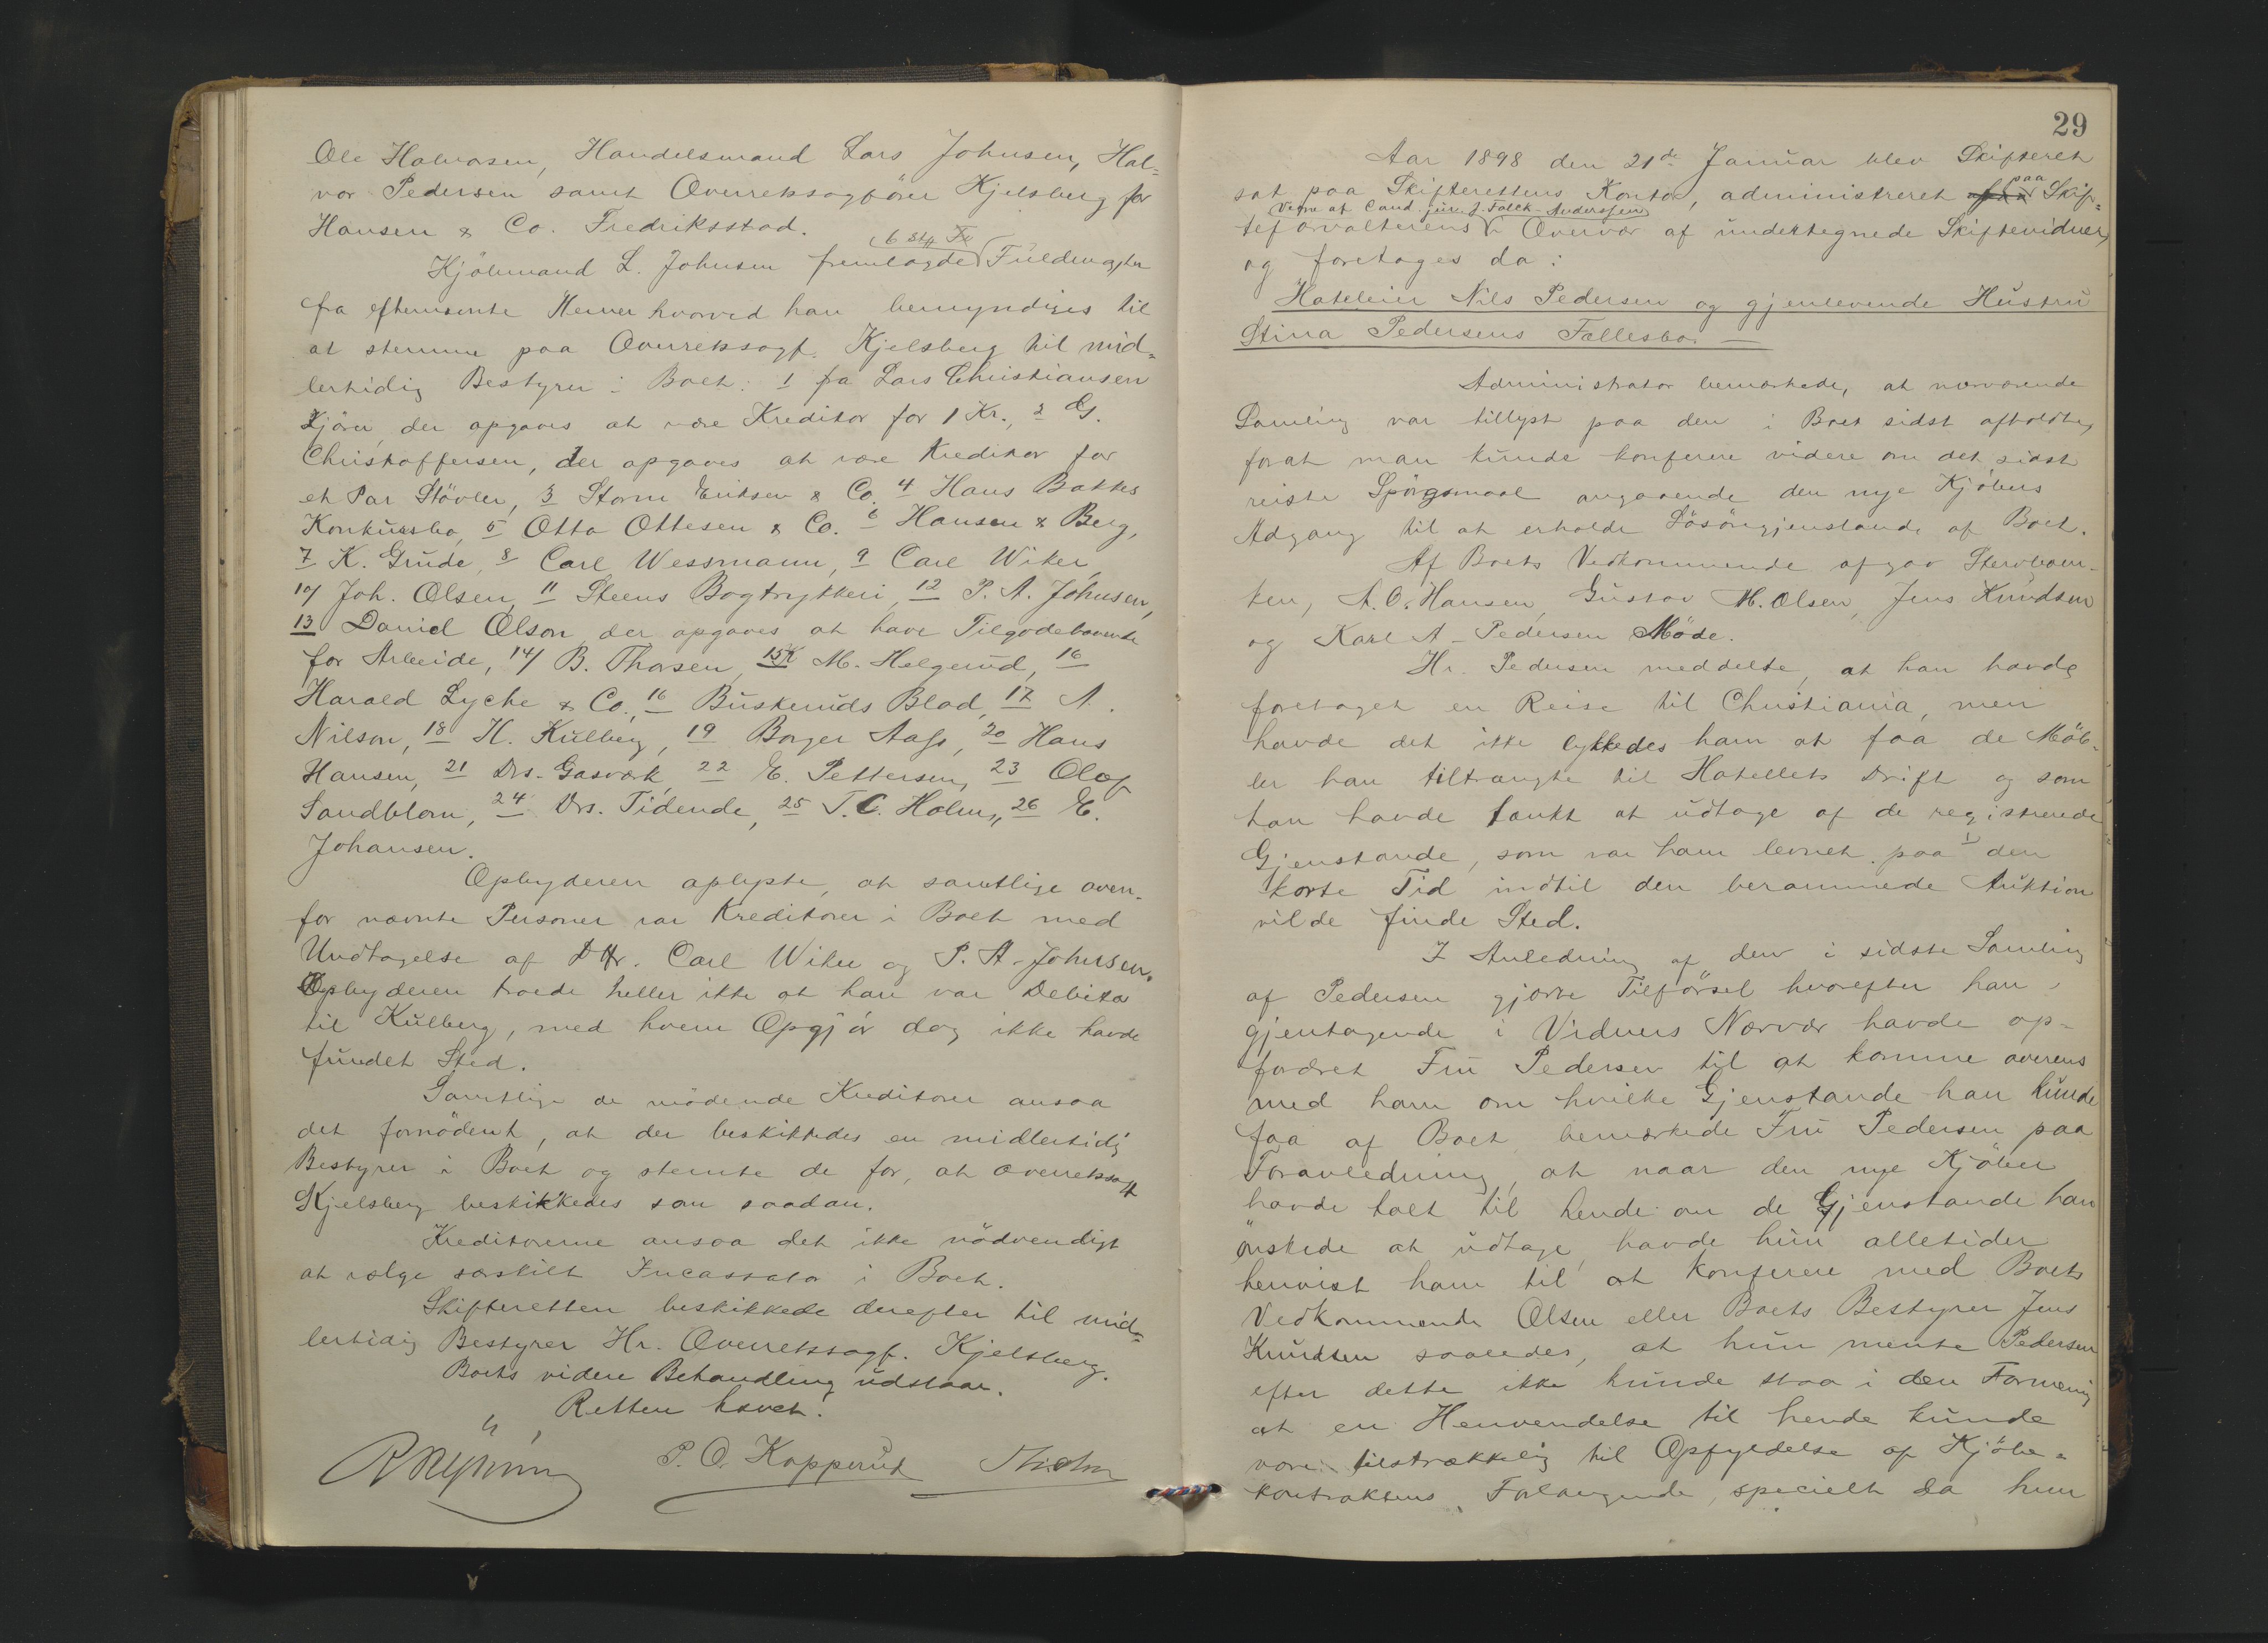 Ole Halvorsen, Handelsmand Lars Johnsen, Hal-
vor Pedersen samt Overretssagfører Kjelsberg for
Hansen & Co. Fredriksstad.
6 Stk
Kjöbmand L. Johnsen fremlagde Fuldmagter
fra efternevnte Herrer hvorved han bemyndiges til
at stemme paa Overretssagf. Kjelsberg til mid-
lertidig Bestyrer i Boet: 1 fra Lars Christiansen
Kjörer, der opgaves at være Kreditor for 1 Kr., 2 G.
Christoffersen, der opgaves at være Kreditor for
et Par Stövler, 3 Storm Eriksen & Co. 4 Hans Bakkes
Konkursbo, 5 Otto Ottesen & Co. 6 Hansen & Berg,
7 K. Grude, 8 Carl Wessmann, 9 Carl Wiker
10/ Joh. Olsen, 11 Steens Bogtrykkeri, 12 P. A. Johnsen,
13 Daniel Olson, der opgaves at have Tilgodehavende
for Arbeide, 14/ B. Thorsen, 15 M. Helgerud, 16
Harald Lyche & Co., 16 Buskeruds Blad, 17 A.
Nilson, 18 H. Kulberg, 19 Borger Aass, 20 Hans
Hansen, 21 Drs. Gasværk, 22 E. Pettersen, 23 Olaf
Sandblom, 24 Drs. Tidende, 25 T. C. Holm, 26 E.
Johansen.
Opbyderen oplyste, at samtlige oven-
for nævnte Personer var Kreditorer i Boet med
Undtagelse af DHr. Carl Wiker og P. A. Johnsen.
Opbyderen troede heller ikke at han var Debitor
til Kulberg, med hvem Opgjör dog ikke havde
fundet Sted.
Samtlige de mödende Kreditorer ansaa
det fornödent, at der beskikkedes en midlertidig
Bestyrer i Boet og stemte de for, at Overretssagf
Kjelsberg beskikkedes som saadan.
Kreditorerne ansaa det ikke nödvendigt
at vælge særskilt Incassator i Boet.
Skifteretten beskikkede derefter til mid-
lertidig Bestyrer Hr. Overretssagf. Kjelsberg.
Boets videre Behandling udstaar.
Retten hævet.
P. O. Kopperud
29
Aar 1898 den 21de Januar blev Skifteret
sat paa Skifterettens Kontor, administreret paa Skif-
Vegne af Cand. jur. J. Falck Anderssen
teforvalterens Overvær af undertegnede Skiftevidner,
og foretoges da:
Hoteleier Nils Pedersen og gjenlevende Hustru
Stina Pedersens Fællesbo. —
Administrator bemærkede, at nærværende
Samling var tillyst paa den i Boet sidst afholdte,
forat man kunde konferere videre om det sidst
reiste Spörgsmaal angaaende den nye Kjöbers
Adgang til at erholde Lösöregjenstande af Boet.
Af Boets Vedkommende afgav Stervboen-
ken, A. O. Hansen, Gustav M. Olsen, Jens Knudsen
og Karl A. Pedersen Möde.
Hr. Pedersen meddelte, at han havde
foretaget en Reise til Christiania, men
havde det ikke lykkedes ham at faa de Möb-
ler han tiltrængte til Hotellets Drift og som
han havde tænkt at udtage af de registrerede
Gjenstande, som var ham levnet paa den
korte Tid indtil den berammede Auktion
vilde finde Sted.
I Anledning af den i sidste Samling
af Pedersen gjorte Tilförsel hvorefter han
gjentagende i Vidners Nærvær havde op-
fordret Fru Pedersen til at komme overens
med ham om hvilke Gjenstande han kunde
faa af Boet bemærkede Fru Pedersen paa
Foranledning, at naar den nye Kjöber
havde talt til hende om de Gjenstande han
önskede at udtage, havde hun alletider
henvist ham til at konferere med Boets
Vedkommende Olsen eller Boets Bestyrer Jens
Knudsen saaledes, at hun mente Pedersen
efter dette ikke kunde staa i den Formening
at en Henvendelse til hende kunde
være tilstrækkelig til Opfyldelse af Kjöbe-
kontraktens Forlangende, specielt da hun